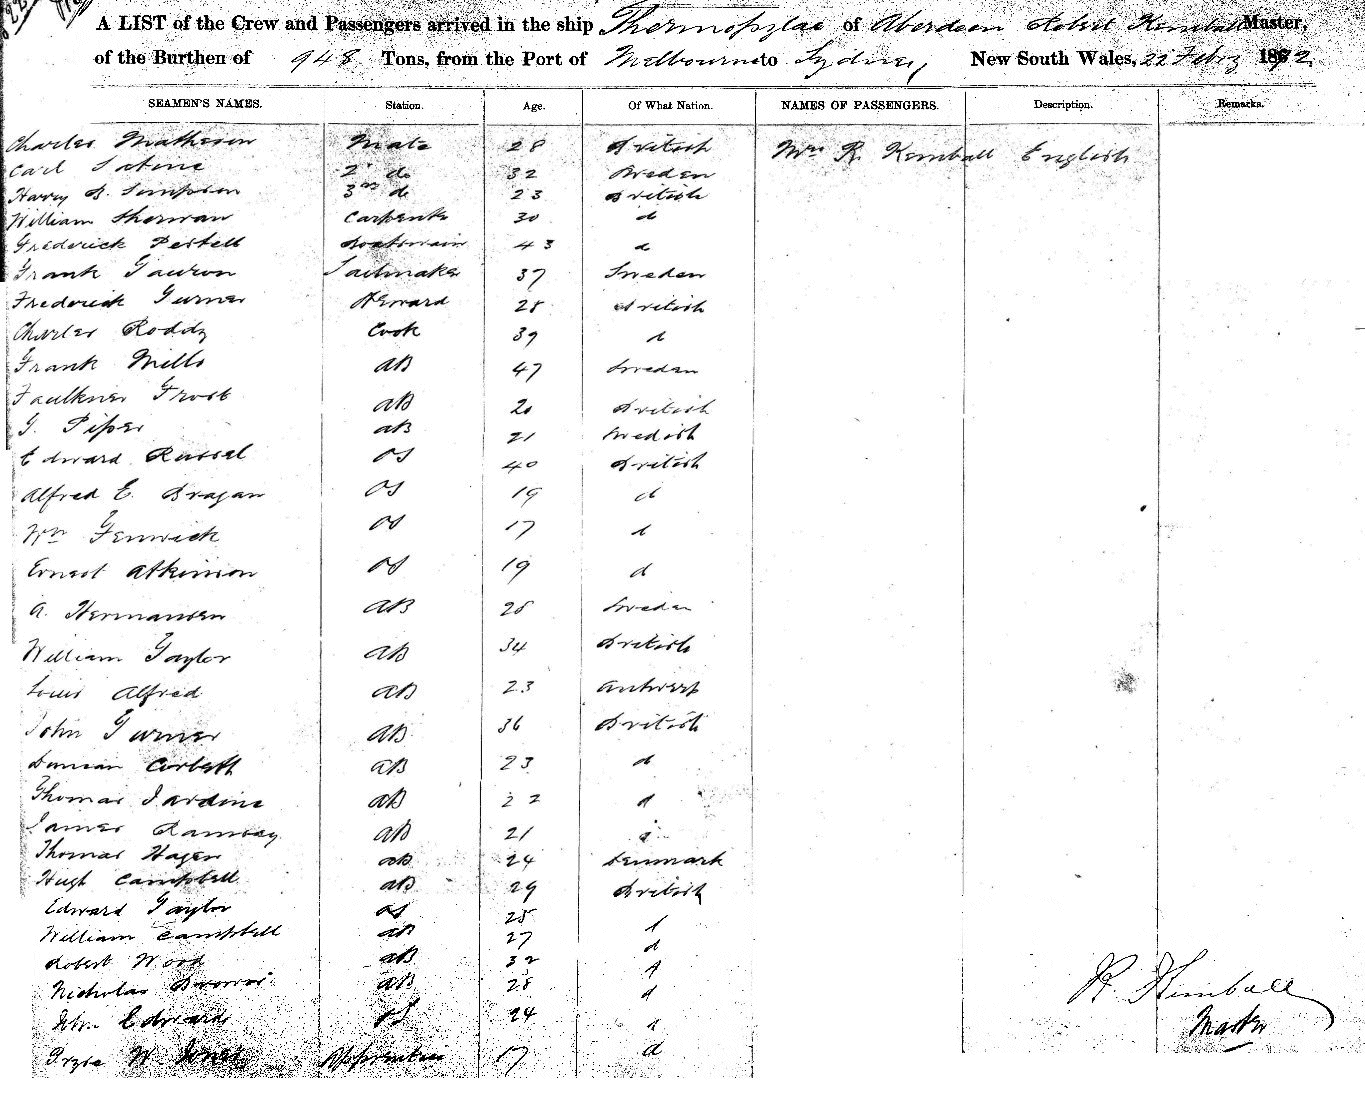 A LIST of the Crew and Passengers arrived in the ship Thermopylae of Aberdeen Robert Kemball Master,
of the Burthen of 948 Tons, from the Port of Melbourne to Sydney, New South Wales, 22 Feby 1872
SEAMEN'S NAMES. Station. Age. Of What Nation. NAMES OF PASSENGERS. Description. Remarks.
Charles Matheson Mate 28 British Mrs R. Kemball English
Carl 2d do 32 Sweden
Harry S. Simpson 3rd d 23 British
William Sherman Carpenter 30 d
Frederick Pestell Boatswain 43 d
Frank Sailmaker 37 Sweden
Frederick Turner Steward 28 British
Charles Roddy Cook 39 d
Frank Mills AB 47 Sweden
Faulkner Frost AB 20 British
G. Piper AB 21 Swedish
Edward Russel OS 40 British
Alfred E. Dragan OS 19 d
Wm Fenwick OS 17 d
Ernest Atkinson OS 19 d
A. Hermansen AB 28 Sweden
William Taylor AB 34 British
Louis Alfred AB 23 Antwerp
John Turner AB 36 British
Duncan Corbett AB 23 d
Thomas Jardine AB 22 d
James Ramsay AB 21 d
Thomas Hagen AB 24 Denmark
Hugh Campbell AB 29 British
Edward Taylor OS 25 d
William Campbell AB 27 d
Robert Wood AB 32 d
Nicholas AB 28 d
John Edwards OS 24 d
W. Jones Apprentice 17 d
R. Kemball
Master